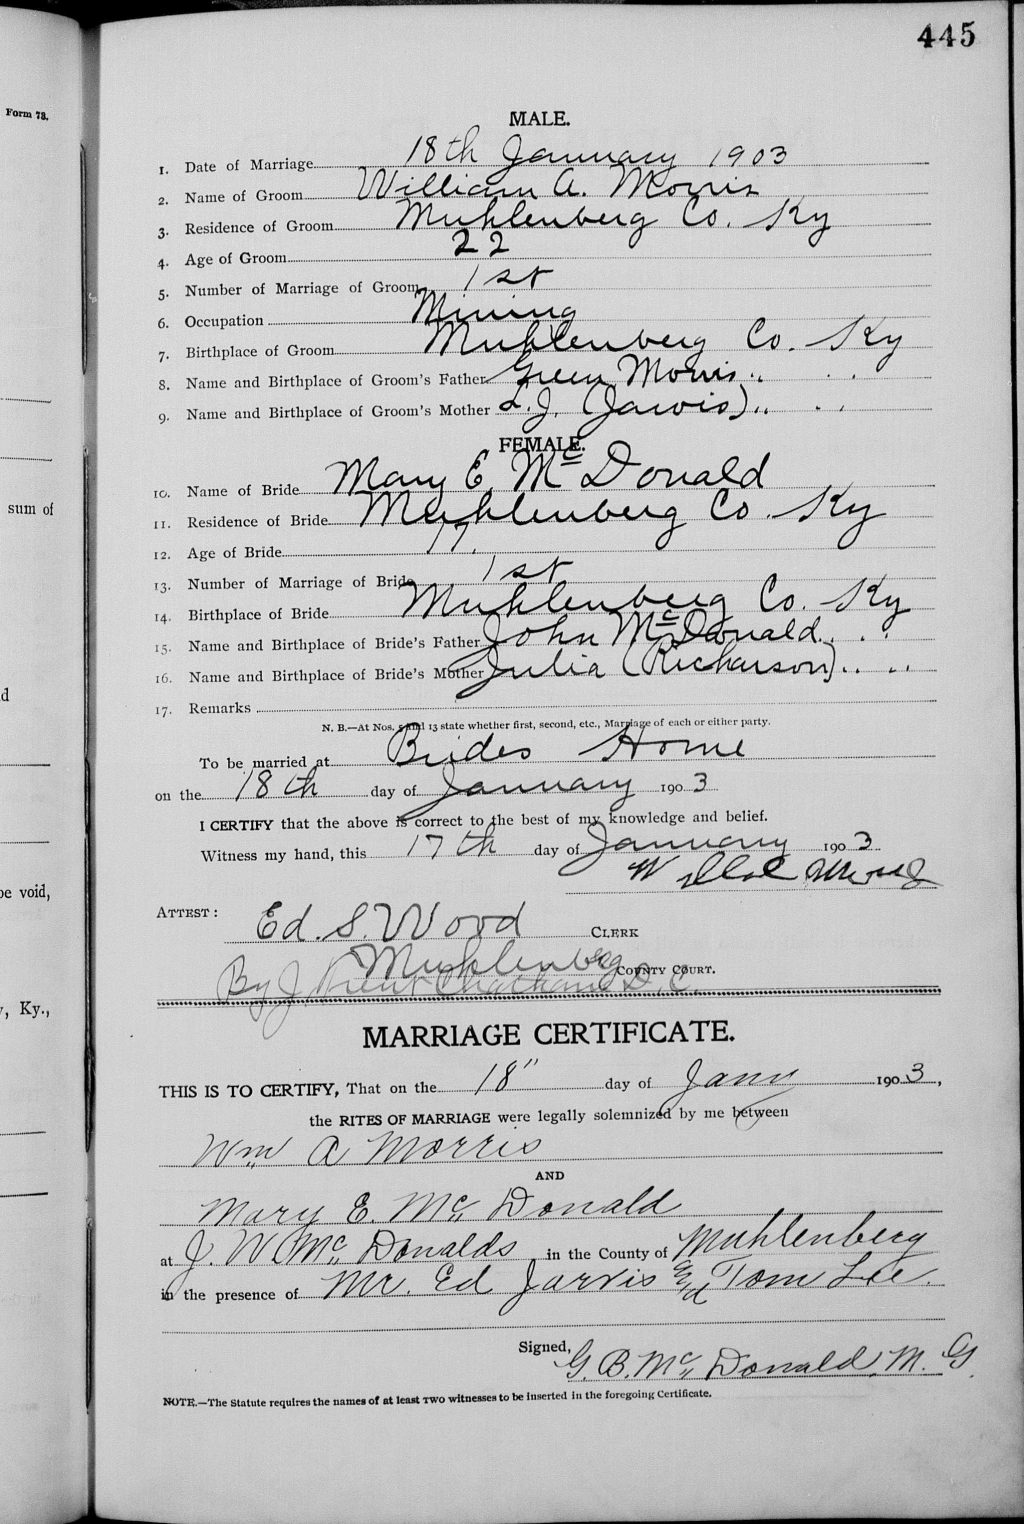 445
Form 78.
MALE.
1. Date of Marriage 18th January 1903
2. Name of Groom William A. Morris
3. Residence of Groom Muhlenberg Co. Ky
4. Age of Groom 22
5. Number of Marriage of Groom 1st
6. Occupation Mining
7. Birthplace of Groom Muhlenberg Co. Ky
8. Name and Birthplace of Groom's Father Green Morris " " "
9. Name and Birthplace of Groom's Mother L. J. (Jarvis) " " "
FEMALE.
10. Name of Bride Mary E. McDonald
11. Residence of Bride Muhlenberg Co. Ky
sum of
12. Age of Bride 17.
13. Number of Marriage of Bride 1st
14. Birthplace of Bride Muhlenberg Co. Ky
15. Name and Birthplace of Bride's Father John McDonald " " "
16. Name and Birthplace of Bride's Mother Julia (Richarson) " "
17. Remarks
N. B.—At Nos. 5 and 13 state whether first, second, etc., Marriage of each or either party.
To be married at Brides Home
on the 18th day of January 1903
I CERTIFY that the above is correct to the best of my knowledge and belief.
Witness my hand, this 17th day of January 1903
be void,
ATTEST: Ed. S. Wood CLERK
Muhlenberg COUNTY COURT.
By J. Chatham D. C.
y, Ky.,
MARRIAGE CERTIFICATE.
THIS IS TO CERTIFY, That on the 18" day of Jany 1903,
the RITES OF MARRIAGE were legally solemnized by me between
Wm A Morris
AND
Mary E. Mc Donald
at J. W. Mc Donalds in the County of Muhlenberg
in the presence of Mr. Ed Jarvis & Tom Lee.
Signed, G. B. Mc Donald, M. G.
NOTE.—The Statute requires the names of at least TWO witnesses to be inserted in the foregoing Certificate.